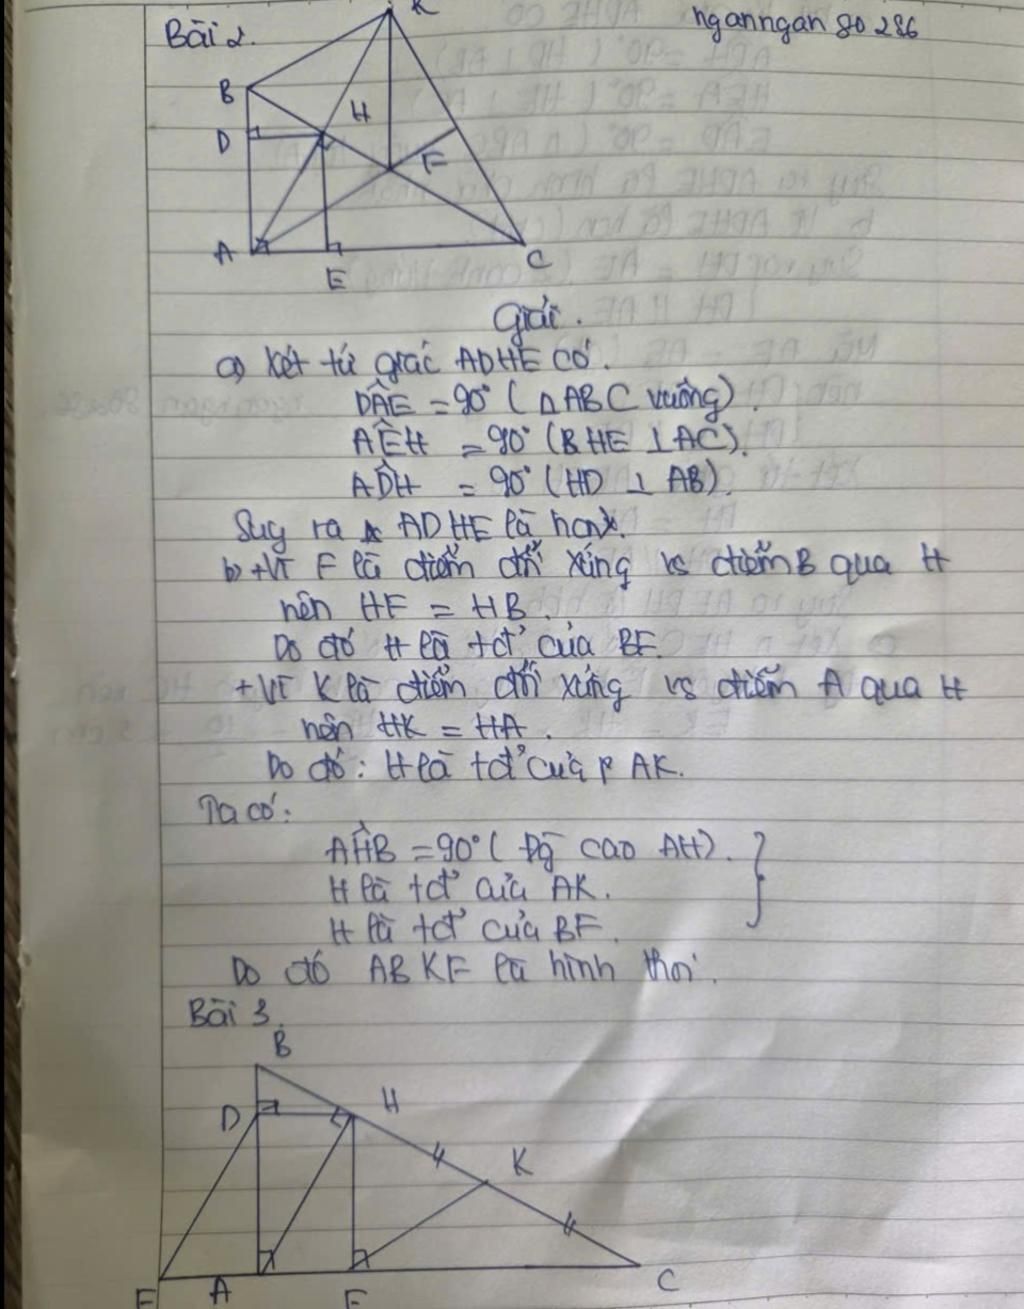 Bài 2.
nganngan 80 286
K
B
H
D
F
A
E
C
Giải.
a) Xét tứ giác ADHE có.
DÂE = 90° (△ABC vuông).
AÊH = 90° (HE ⊥ AC).
AD̂H = 90° (HD ⊥ AB).
Suy ra ADHE là hcn.
b) +Vì F là điểm đối xứng vs điểm B qua H
nên HF = HB.
Do đó H là tđ' của BF.
+ Vì K là điểm đối xứng vs điểm A qua H
nên HK = HA.
Do đó: H là tđ' của AK.
Ta có:
AĤB = 90° (Đg cao AH).
H là tđ' của AK.
H là tđ' của BF.
Do đó ABKF là hình thoi.
Bài 3.
B
D
H
K
F
A
E
C